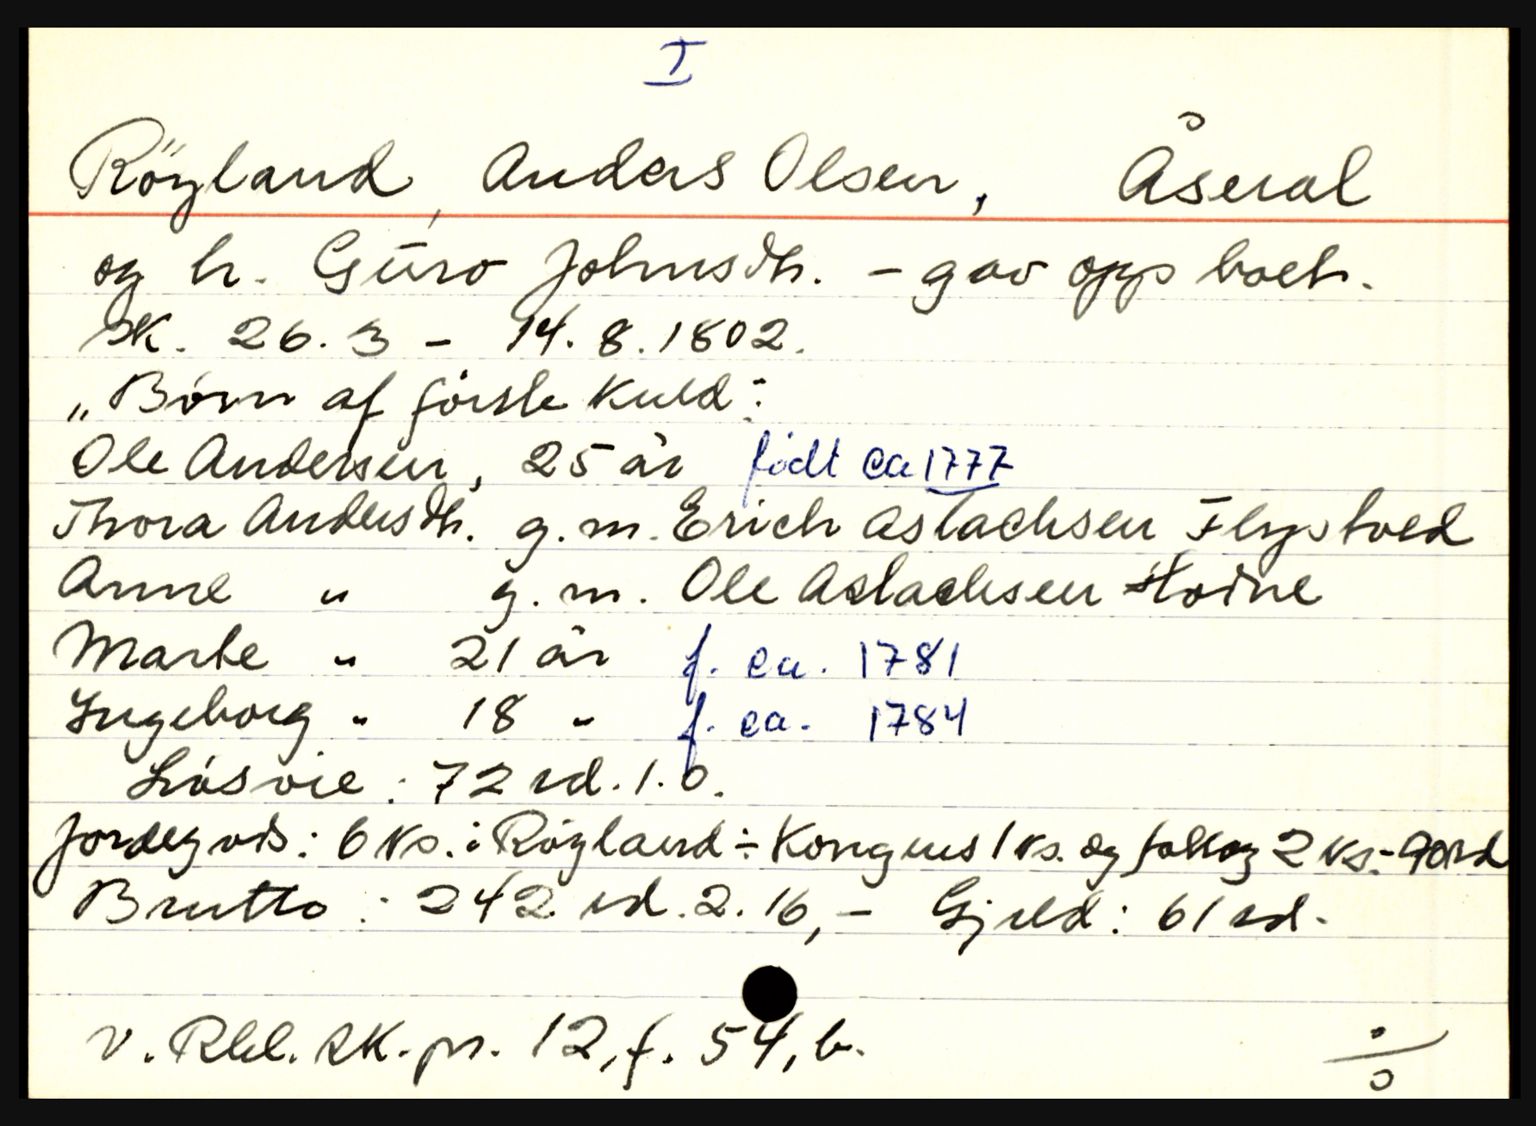 I
Röyland, Anders Olsen, Åseral
og h. Guro Johnsdh. - gav opp boet.
SK. 26.3 - 14.8.1802.
„Børn af förste Kuld:
Ole Andersen, 25 år födt ca 1777
Thora Andersdh. g.m. Erich Aslachsen
Anne " g.m. Ole Aslachsen
Marte " 21 år f. ca. 1781
Ingeborg " 18 " f. ca. 1784
Lösöie: 72 rd. 1. 0.
Jordegods: 6 ks. i Röyland ÷ Kongens 1 ks. og 2 ks.- 90rd
Brutto: 242 rd. 2. 16, - Gjeld: 61 rd.
V. Rbl. SK. pr. 12, f. 54, b.